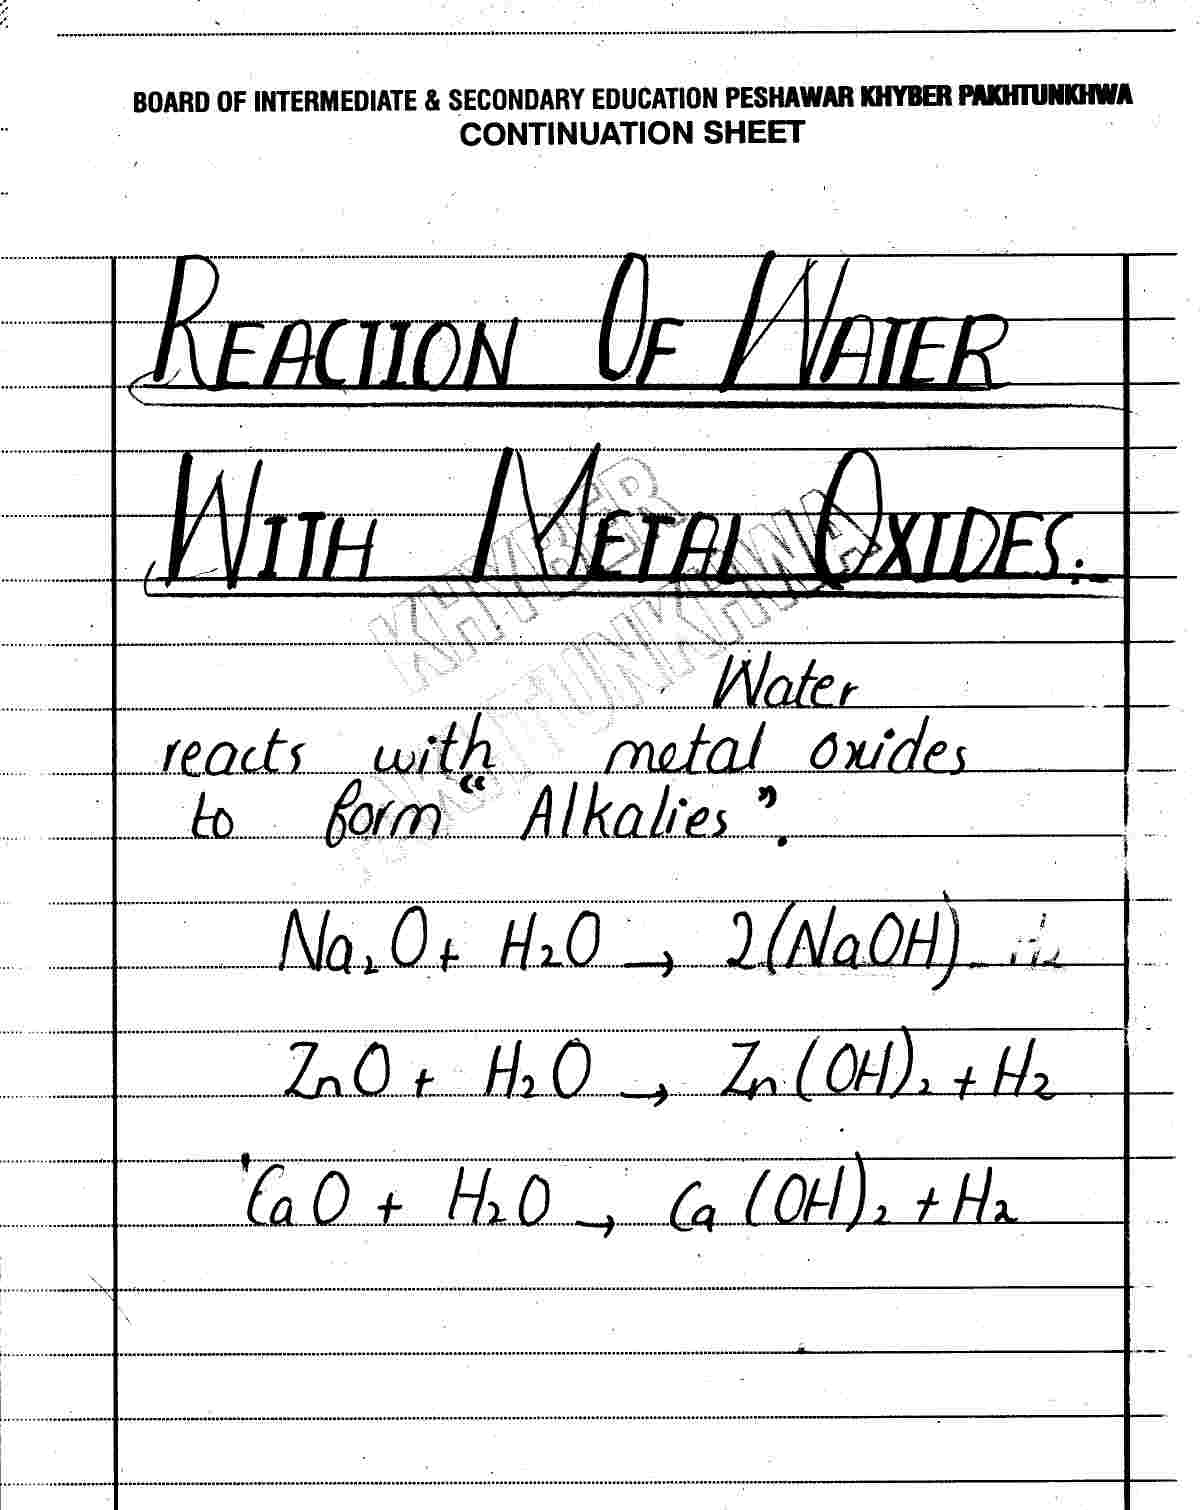 BOARD OF INTERMEDIATE & SECONDARY EDUCATION PESHAWAR KHYBER PAKHTUNKHWA
CONTINUATION SHEET
REACTION OF WATER
WITH METAL OXIDES.
KHYBER
PAKHTUNKHWA
Water
reacts with metal oxides
to form "Alkalies".
Na₂O + H₂O → 2(NaOH)
ZnO + H₂O → Zn(OH)₂ + H₂
CaO + H₂O → Ca(OH)₂ + H₂